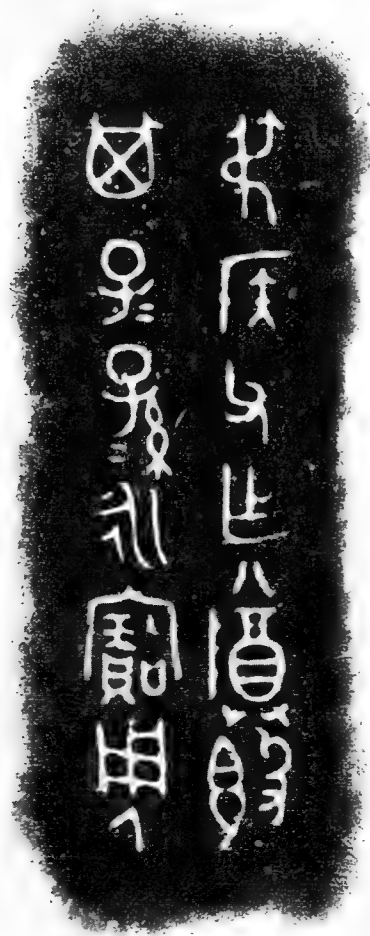 弔侯父乍尊簋
其子子孫孫永寶用